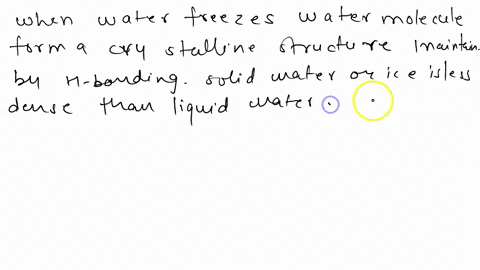 when water freezes water molecule
form a crystalline structure maintain
by H-bonding. solid water or ice is less
dense than liquid water.